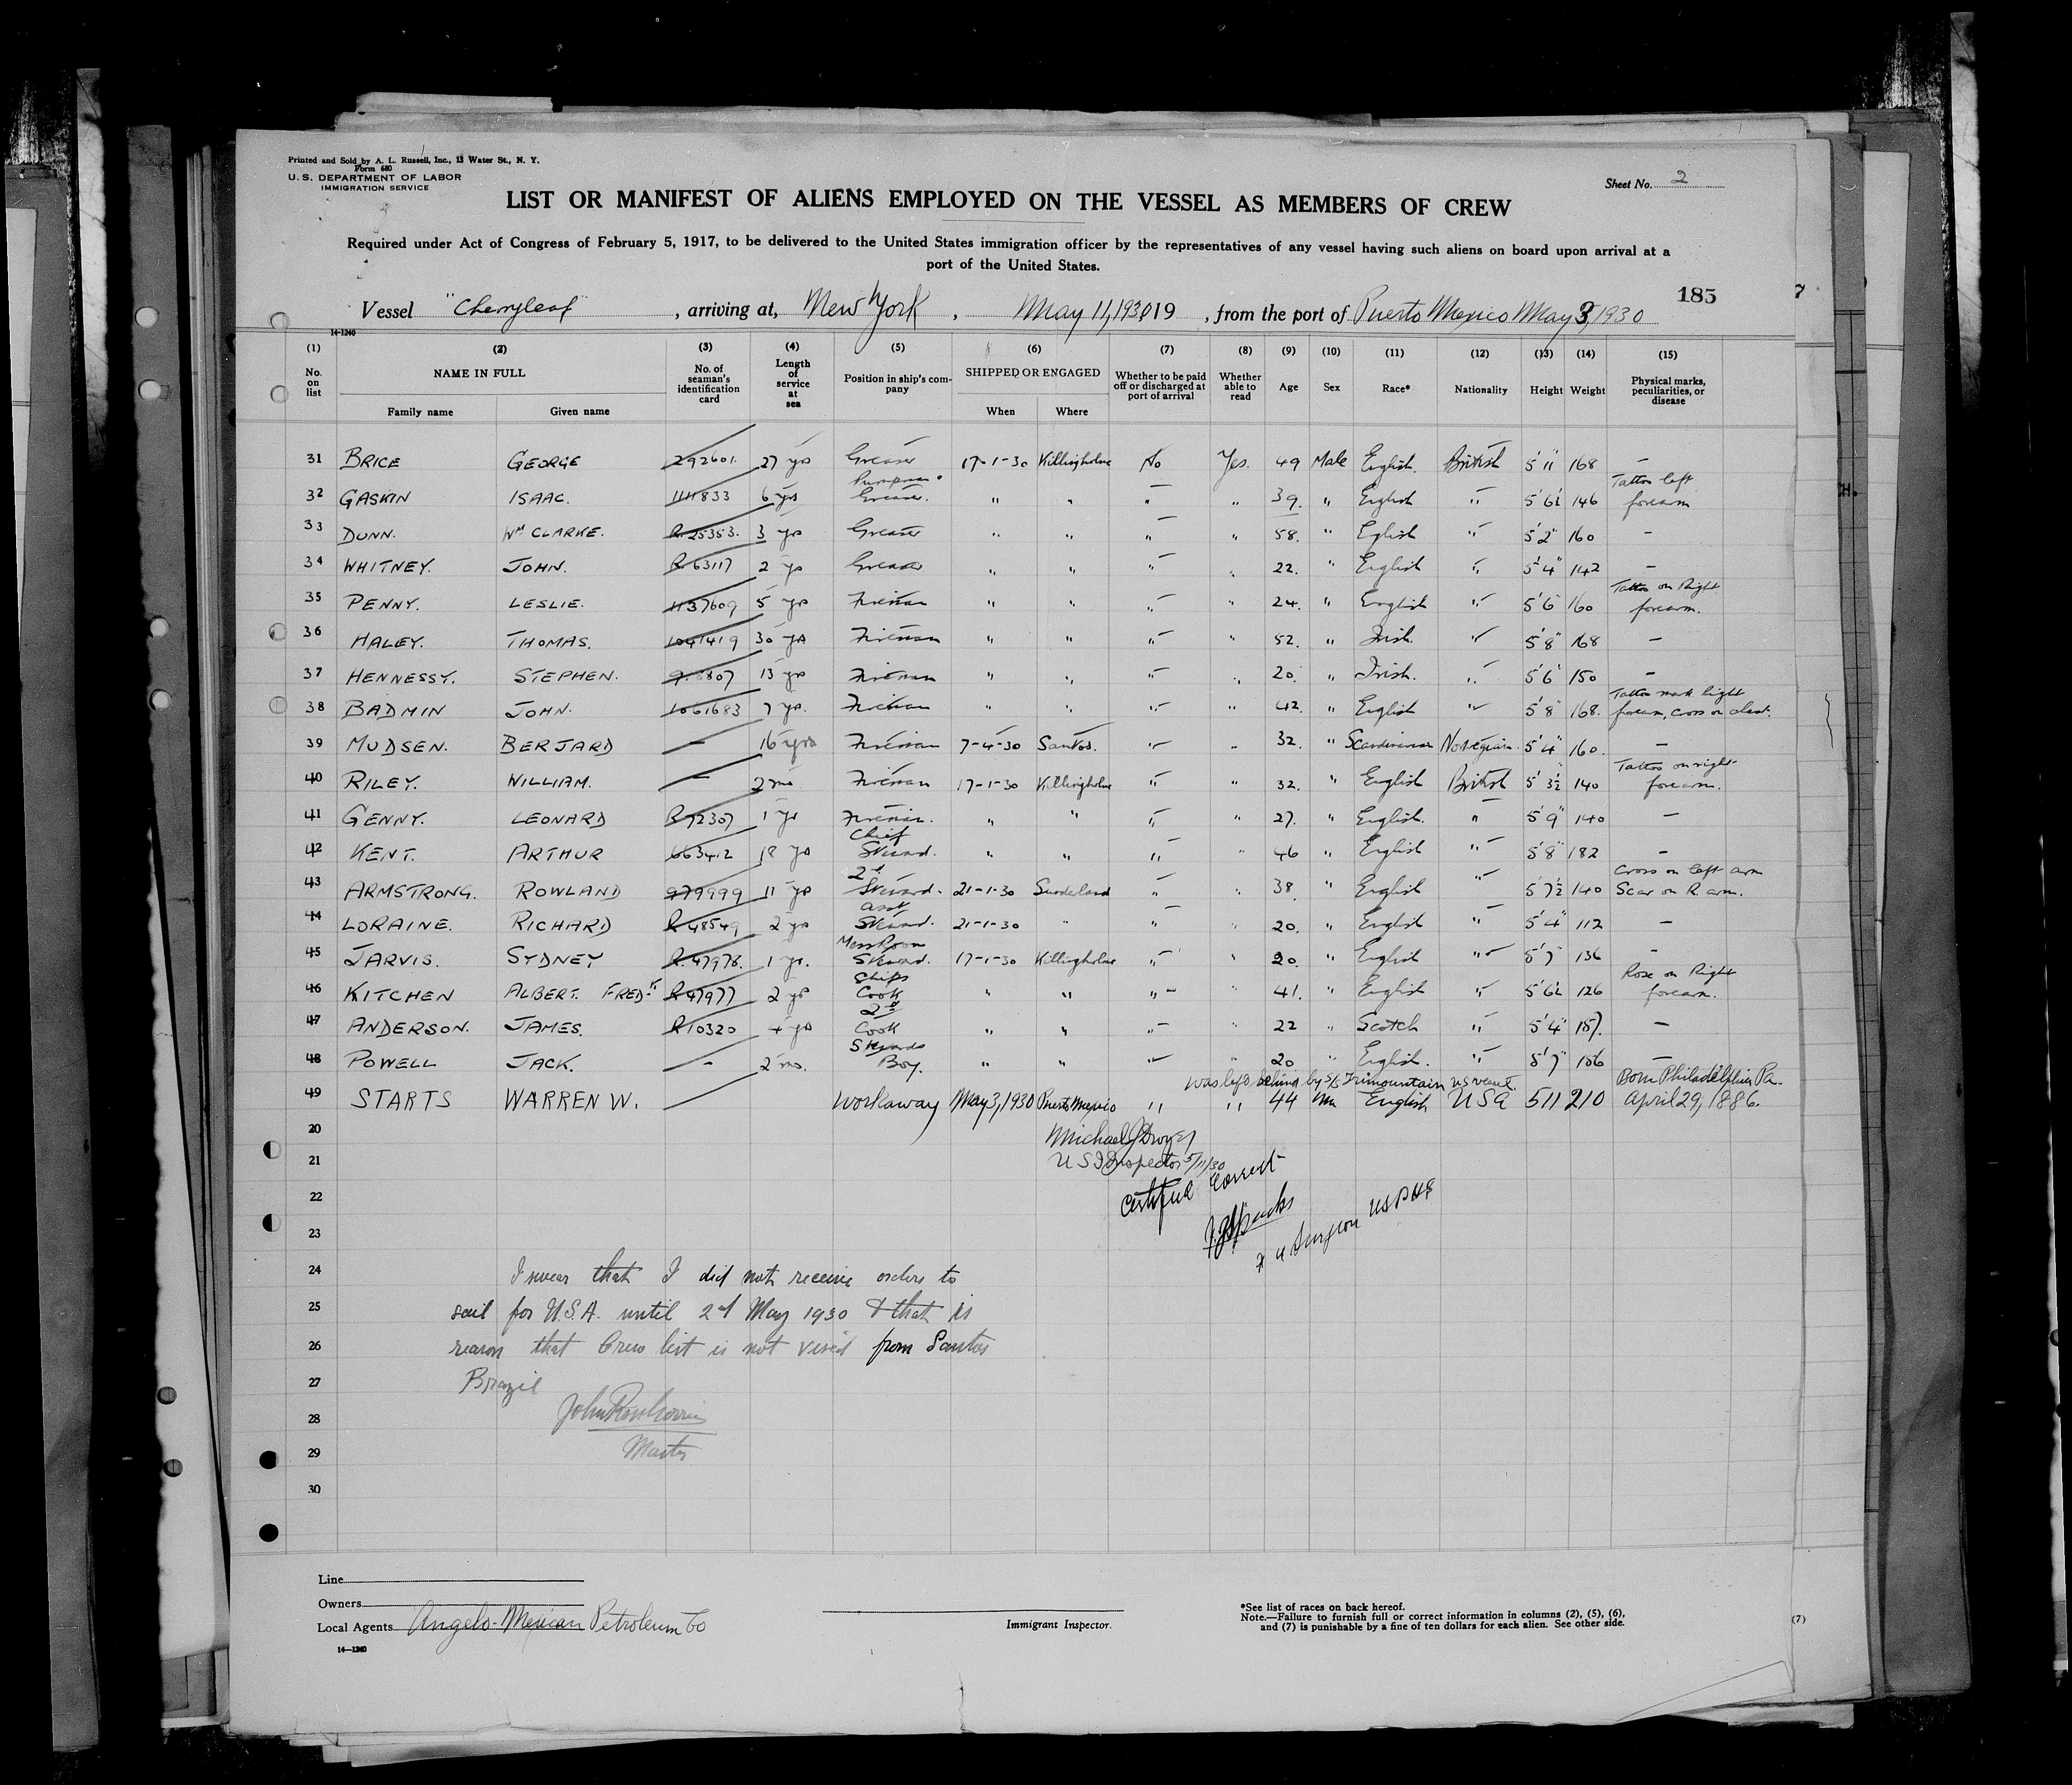 Printed and Sold by A. L. Russell, Inc., 13 Water St., N. Y.
Form 680
U. S. DEPARTMENT OF LABOR
IMMIGRATION SERVICE
Sheet No. 2
LIST OR MANIFEST OF ALIENS EMPLOYED ON THE VESSEL AS MEMBERS OF CREW
Required under Act of Congress of February 5, 1917, to be delivered to the United States immigration officer by the representatives of any vessel having such aliens on board upon arrival at a
port of the United States.
185
Vessel "Cherryleaf", arriving at, New York, May 11, 1930 19, from the port of Puerto Mexico May 3, 1930
14-1240
(1) (2) (3) (4) (5) (6) (7) (8) (9) (10) (11) (12) (13) (14) (15)
No. on list NAME IN FULL Family name Given name No. of seaman's identification card Length of service at sea Position in ship's company SHIPPED OR ENGAGED When Where Whether to be paid off or discharged at port of arrival Whether able to read Age Sex Race* Nationality Height Weight Physical marks, peculiarities, or disease
31 BRICE GEORGE 292601. 27 yrs Greaser 17-1-30 Killingholme No Yes. 49 Male English. British 5'11 168 –
32 GASKIN ISAAC. 1111833 6 yrs Pumpman Greaser. " " " " 39. " English " 5'6½ 146 Tattoo left forearm
33 DUNN. Wm CLARKE. R.25353. 3 yrs Greaser " " " " 58. " English " 5'2" 160 –
34 WHITNEY. JOHN. R.63117 2 yrs Greaser " " " " 22. " English " 5'4" 142 –
35 PENNY. LESLIE. 1137609 5 yrs Fireman " " " " 24. " English " 5'6" 160 Tattoo on Right forearm.
36 HALEY. THOMAS. 1041419 30 yrs Fireman " " " " 52. " Irish. " 5'8" 168 –
37 HENNESSY. STEPHEN. 13 yrs Fireman " " " " 20. " Irish. " 5'6 150 –
38 BADMIN JOHN. 1061683 7 yrs. Fireman " " " " 42. " English " 5'8" 168. Tattoo mark Right forearm, cross on chest.
39 MUDSEN. BERJARD – 16 yrs Fireman 7-4-30 Santos. " " 32. " Scandinavian Norwegian. 5'4" 160. –
40 RILEY. WILLIAM. – 2 mo Fireman 17-1-30 Killingholme " " 32. " English British 5'3½ 140 Tattoo on right forearm.
41 GENNY. LEONARD R72307 1 yr Fireman. " " " " 27. " English. " 5'9" 140 –
42 KENT. ARTHUR 663412 18 yrs Chief Steward. " " " " 46 " English " 5'8" 182 –
43 ARMSTRONG. ROWLAND 979999 11 yrs 2nd Steward. 21-1-30 Sunderland " " 38 " English " 5'7½ 140 Cross on left arm Scar on R. arm.
44 LORAINE. RICHARD R.48549 2 yrs Asst Steward. 21-1-30 " " " 20. " English " 5'4" 112 –
45 JARVIS. SYDNEY R.47976. 1 yr. Mess Room Steward. 17-1-30 Killingholme " " 20. " English " 5'7" 136 –
46 KITCHEN ALBERT. FREDK R47977 2 yrs Ships Cook " " " " 41. " English " 5'6½ 126 Rose on Right forearm.
47 ANDERSON. JAMES. R10320 4 yrs 2nd Cook " " " " 22 " Scotch " 5'4" 157. –
48 POWELL JACK. – 2 mo. Stewards Boy. " " " " 20 " English. " 5'7" 156 –
was left behind by S/S Trimountain US vessel.
49 STARTS WARREN W. Workaway May 3, 1930 Puerto Mexico " " 44 M English USA 511 210 Born Philadelphia Pa. April 29, 1886.
20
Michael J Dwyer
21
U S I Inspector 5/11/30
22
Certified Correct
23
Surgeon USPHS
24 I swear that I did not receive orders to
25 sail for U.S.A. until 2nd May 1930 & that is
26 reason that Crew list is not visé'd from Santos
27 Brazil
28
29 Master
30
Line
Owners
Local Agents Angelo-Mexican Petroleum Co
14-1240
Immigrant Inspector.
*See list of races on back hereof.
Note.—Failure to furnish full or correct information in columns (2), (5), (6),
and (7) is punishable by a fine of ten dollars for each alien. See other side.
(7)